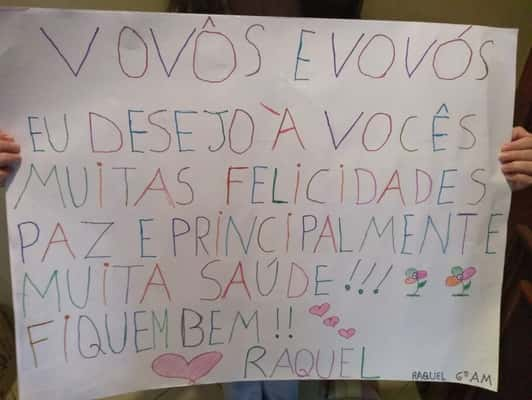 VOVÔS E VOVÓS
EU DESEJO À VOCÊS
MUITAS FELICIDADES
PAZ E PRINCIPALMENTE
MUITA SAÚDE!!!
FIQUEM BEM!!
RAQUEL
RAQUEL 6º AM